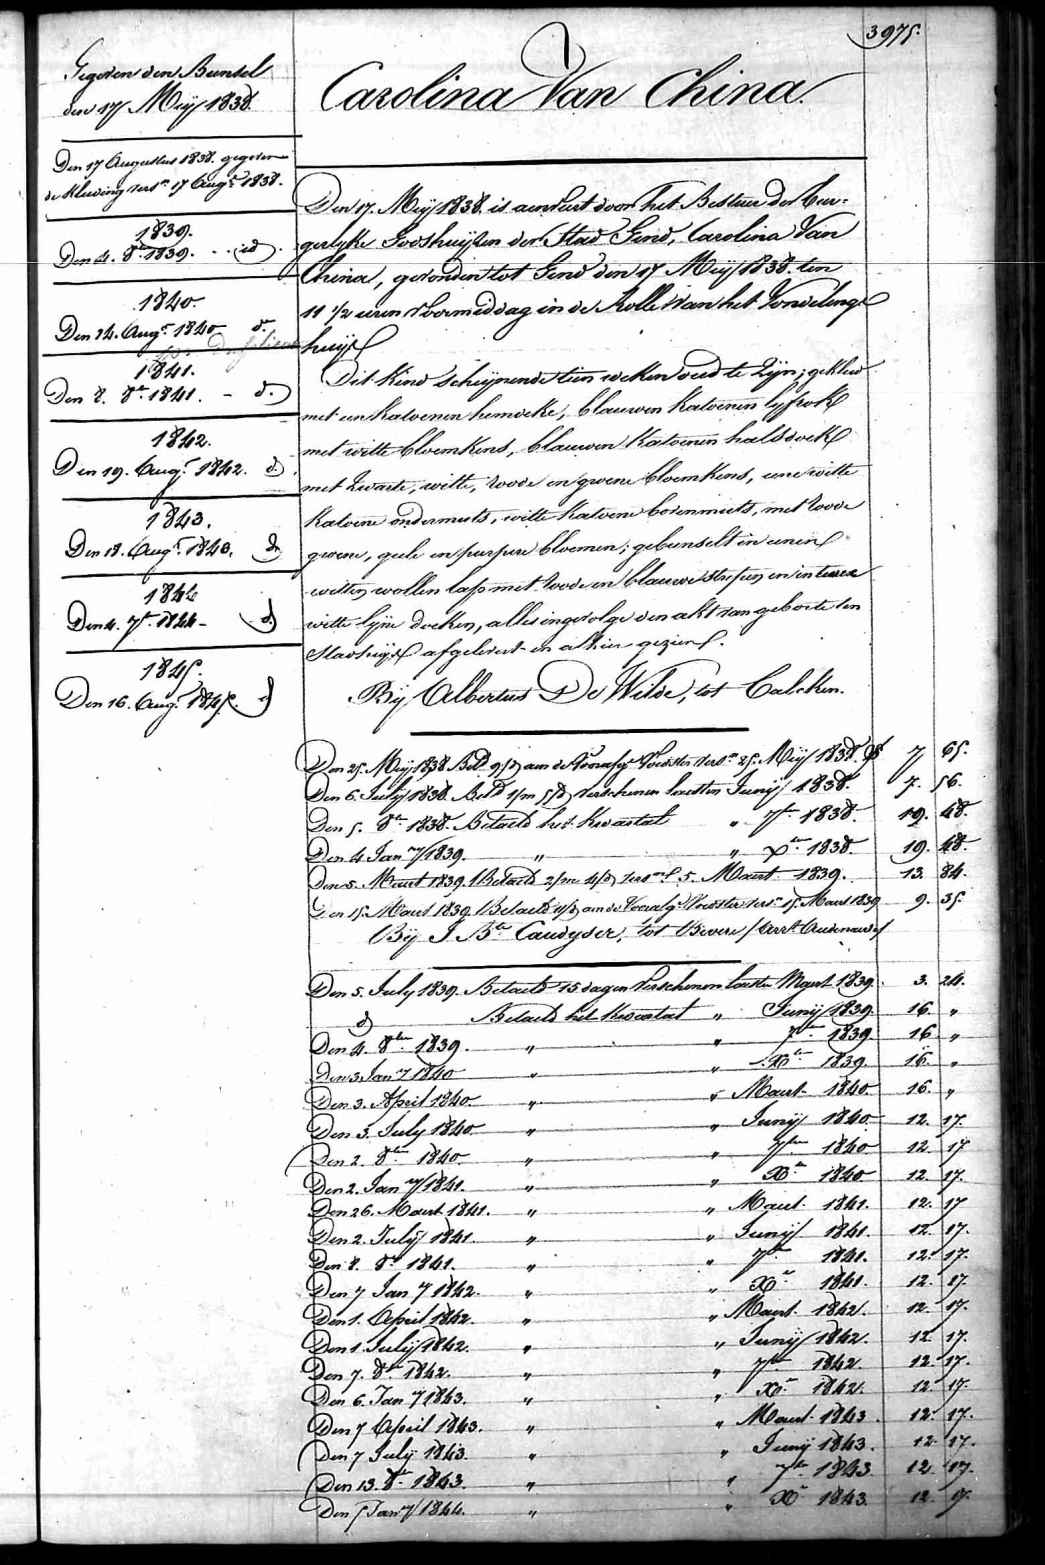 3975.
Carolina Van China.
Gegeven den Bunsel
den 17 Meij 1838.
Den 17 Augustus 1838. gegeven
de Kleeding vers.n 17 Aug.t 1838.
1839.
Den 4. 8.r 1839. - - id
1840.
Den 24. Aug.t 1840 d.o
1841.
Den 8. 8.r 1841. - d.o
1842.
Den 19. Aug.t 1842. d.o
1843.
Den 18. Aug.t 1843. d.o
1844
Den 4. 7.r 1844 - d.o
1845.
Den 16. Aug.t 1845. d.o
Den 17. Meij 1838. is aenveirt door het Bestuer der Bur-
gerlyke Godshuijsen der Stad Gend, Carolina Van
China, gevonden tot Gend den 17 Meij 1838. ten
11 1/2 uren Voormiddag in de Rolle van het Vondelinge
huijs
Dit Kind scheijnende tien weken oud te Zijn; gekleed
met een katoenen hemdeke, blauwen katoenen lyfrok
met witte bloemkens, blauwen katoenen halsdoek
met zwarte, witte, roode en groene bloemkens, eene witte
katoene ondermuts, witte katoene bovenmuts, met roode
groene, geele en purpure bloemen; gebunselt in eenen
witten wollen lap met roode en blauwe strepen en in twee
witte lyne doeken, alles ingevolge den akt van geboorte ten
Stadhuijse afgelevert en alhier gezien.
Bij Albertus De Wilde, tot Calcken.
Den 25. Meij 1838 Bet.d 9/d aen de Voorafg.e Voedster vers.n 25. Meij 1838. 7 65.
Den 6. Julij 1838. Bet.d 1/m 5/d verschenen laesten Junij 1838. 7. 56.
Den 5. 8.re 1838. Betaeld het Kwartael " 7.re 1838. 19. 48.
Den 4 Jan.ry 1839. " " X.re 1838. 19. 48.
Den 5. Maert 1839. Betaeld 2/m 4/d vers.n 5. Maert 1839. 13. 84.
Den 15. Maert 1839. Betaeld aen de Voorafg.e Voedster vers.n 15. Maert 1839 9. 35.
Bij J. B.te Caudyser, tot Bevere / Arr.t Audenaerde /
Den 5. July 1839. Betaeld 15 dagen Verschenen laesten Maert 1839. 3. 24.
d.o Betaeld het Kwartael " Junij 1839. 16. "
Den 4. 8.bre 1839. " " 7.bre 1839. 16 "
Den 3 Jan.y 1840 " " X.bre 1839. 16. "
Den 3. April 1840. " " Maert 1840. 16. "
Den 3. July 1840 " " Junij 1840 12. 17.
Den 2. 8.bre 1840. " " 7.bre 1840 12. 17
Den 2. Jan.ry 1841. " " X.re 1840 12. 17.
Den 26. Maert 1841. " " Maert 1841. 12. 17
Den 2. Julij 1841. " " Junij 1841. 12. 17.
Den 8. 8.re 1841. " " 7.re 1841. 12. 17.
Den 7 Jan.y 1842. " " X.re 1841. 12. 17
Den 1. April 1842. " " Maert 1842. 12. 17.
Den 1. Julij 1842. " " Junij 1842. 12. 17.
Den 7. 8.re 1842. " " 7.re 1842 12. 17.
Den 6. Jan.y 1843. " " X.re 1842. 12. 17.
Den 7 April 1843. " " Maert 1843. 12. 17.
Den 7 July 1843. " " Junij 1843. 12. 17.
Den 13. 8.re 1843. " " 7.bre 1843 12. 17.
Den 5 Jan.ry 1844. " " X.re 1843. 12. 17.